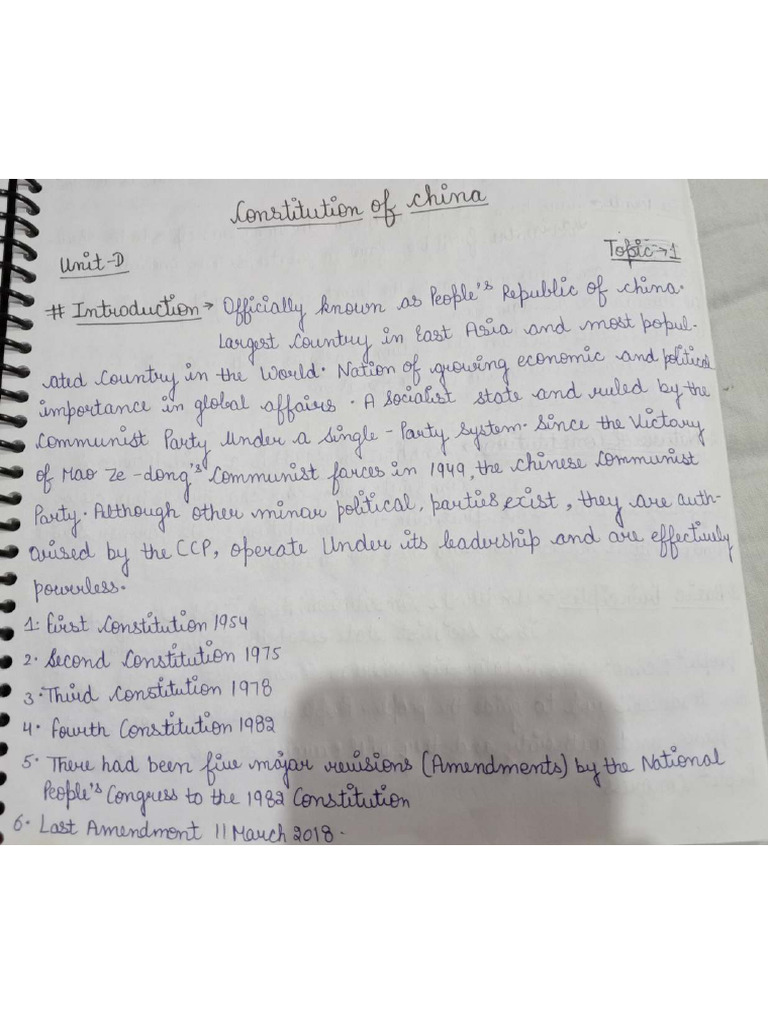 Constitution of China
Unit-D
Topic→1
# Introduction → Officially known as People's Republic of China.
Largest Country in East Asia and most popul-
ated Country in the World. Nation of growing economic and political
importance in global affairs. A Socialist state and ruled by the
Communist Party Under a Single-Party System. Since the Victory
of Mao Ze-dong's Communist forces in 1949, the Chinese Communist
Party. Although other minor political, parties exist, they are auth-
orised by the CCP, operate Under its leadership and are effectively
powerless.
1. First Constitution 1954
2. Second Constitution 1975
3. Third Constitution 1978
4. Fourth Constitution 1982
5. There had been five major revisions (Amendments) by the National
People's Congress to the 1982 Constitution
6. Last Amendment 11 March 2018.